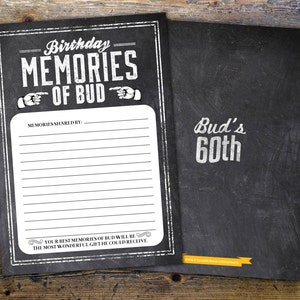 Birthday
MEMORIES
OF BUD
MEMORIES SHARED BY:
YOUR BEST MEMORIES OF BUD WILL BE
THE MOST WONDERFUL GIFT HE COULD RECEIVE.
Bud's
60th